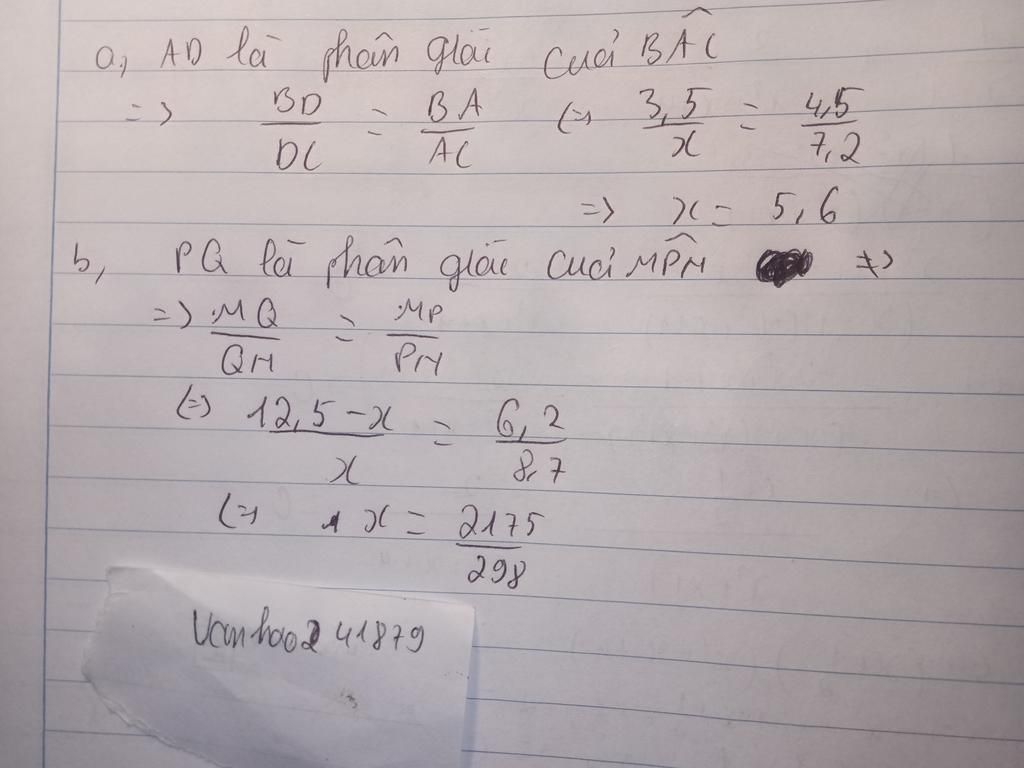 a, AD là phân giác cuả BÂC
=> BD/DC = BA/AC <=> 3,5/x = 4,5/7,2
=> x = 5,6
b, PQ là phân giác cuả MP̂N =>
=> MQ/QN = MP/PN
<=> 12,5 - x/x = 6,2/8,7
<=> x = 2175/298
Vanhao241879